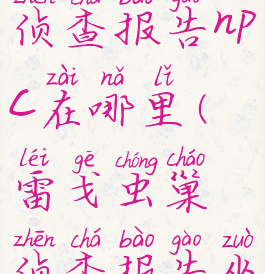 zhēn chá bào gào
侦查报告np
zài nǎ lǐ
c在哪里(
léi gē chóng cháo
雷戈虫巢
zhēn chá bào gào zuò
侦查报告坐